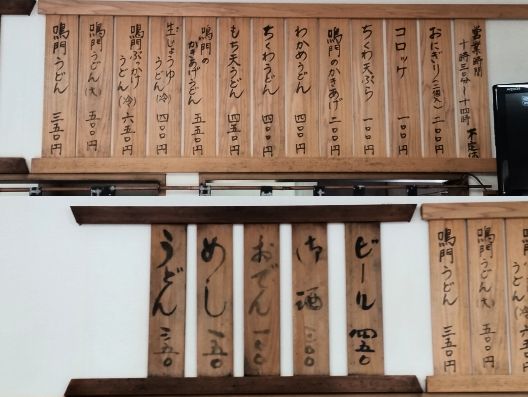 営業時間
十時三〇分〜十四時
おにぎり(二個入) 二〇〇円
コロッケ 一〇〇円
ちくわ天ぷら 一〇〇円
鳴門のかきあげ 二〇〇円
わかめうどん 四〇〇円
ちくわうどん 四〇〇円
もち天うどん 四五〇円
鳴門の
かきあげうどん 五五〇円
生じょうゆ
うどん(冷) 四〇〇円
鳴門ぶっかけ
うどん(冷) 六五〇円
鳴門うどん(大) 五〇〇円
鳴門うどん 三五〇円
ビール 四五〇
御酒 三〇〇
おでん 一〇〇
めし 一五〇
うどん 三五〇
鳴門うどん(大) 五〇〇円
鳴門うどん 三五〇円